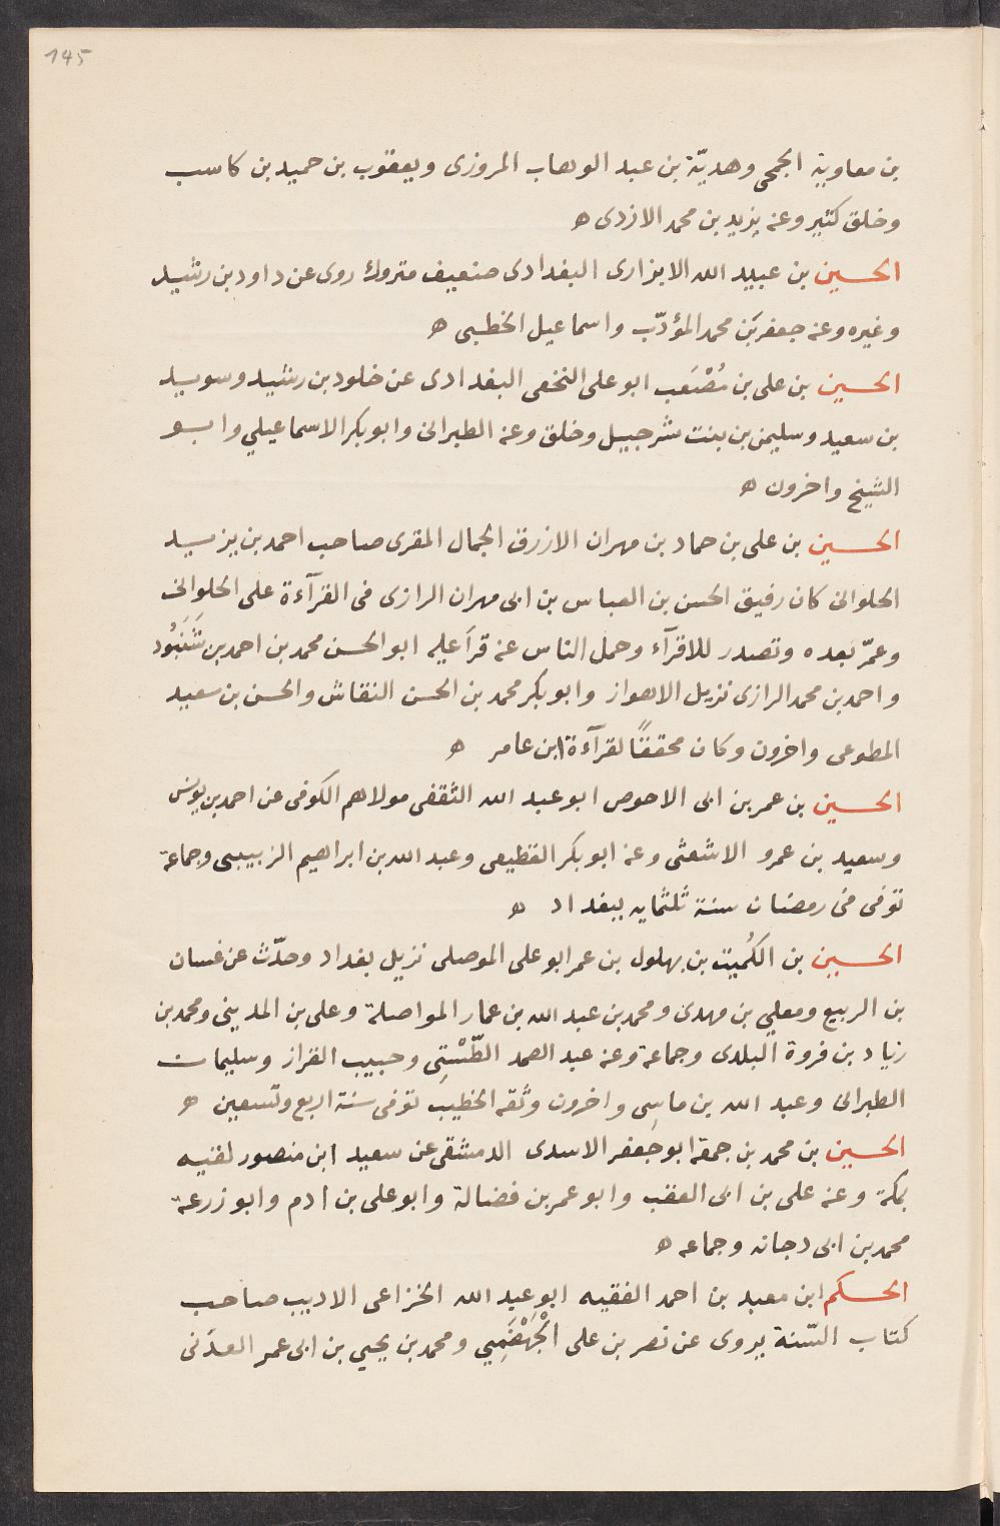 145
بن معاوية الجمحى وهديّة بن عبد الوهاب المروزى ويعقوب بن حميد بن كاسب
وخلق كثير وعنه يزيد بن محمد الازدى ه
الحسين بن عبيد الله الابزارى البغدادى ضعيف متروك روى عن داود بن رشيد
وغيره وعنه جعفر بن محمد المؤدّب واسماعيل الخطبى ه
الحسين بن على بن مُصْعَب ابو على النخعى البغدادى عن خلود بن رشيد وسويد
بن سعيد وسليمن بن بنت شرحبيل وخلق وعنه الطبرانى وابو بكر الاسماعيلي وابو
الشيخ واخرون ه
الحسين بن على بن حماد بن مهران الازرق الجمال المقرى صاحب احمد بن يزيد
الحلوانى كان رفيق الحسن بن العباس بن ابى مهران الرازى فى القرآءة على الحلوانى
وعمّر بعده وتصدر للاقرآء وحمل الناس عنه قرأ عليه ابو الحسن محمد بن احمد بن شَنَبُود
واحمد بن محمد الرازى نزيل الاهواز وابو بكر محمد بن الحسن النقاش والحسن بن سعيد
المطوعى واخرون وكان محققًا لقرآءة ابن عامر ه
الحسين بن عمر بن ابى الاحوص ابو عبد الله الثقفى مولاهم الكوفى عن احمد بن يونس
وسعيد بن عمرو الاشعثى وعنه ابو بكر القطيعى وعبد الله بن ابراهيم الزبيبى وجماعة
توفى فى رمضان سنة ثلثمايه ببغداد ه
الحسين بن الكُميت بن بهلول بن عمر ابو على الموصلى نزيل بغداد وحدّث عن غسان
بن الربيع ومعلي بن مهدى ومحمد بن عبد الله بن عمار المواصلة وعلى بن المدينى ومحمد بن
زياد بن فروة البلدى وجماعة وعنه عبد الصمد الطّسْتِى وحبيب القزاز وسليمان
الطبرانى وعبد الله بن ماسِى واخرون وثّقه الخطيب توفى سنة اربع وتسعين ه
الحسين بن محمد بن جمعة ابو جعفر الاسدى الدمشقى عن سعيد ابن منصور لقنيه
بمكة وعنه على بن ابى العقب وابو عمر بن فضالة وابو على بن ادم وابو زرعة
محمد بن ابى دجانه وجماعه ه
الحكم ابن معبد بن احمد الفقيه ابو عبد الله الخزاعى الاديب صاحب
كتاب السّنة يروى عن نصر بن على الْجَهْضَمِيي ومحمد بن يحيي بن ابى عمر العدَنى